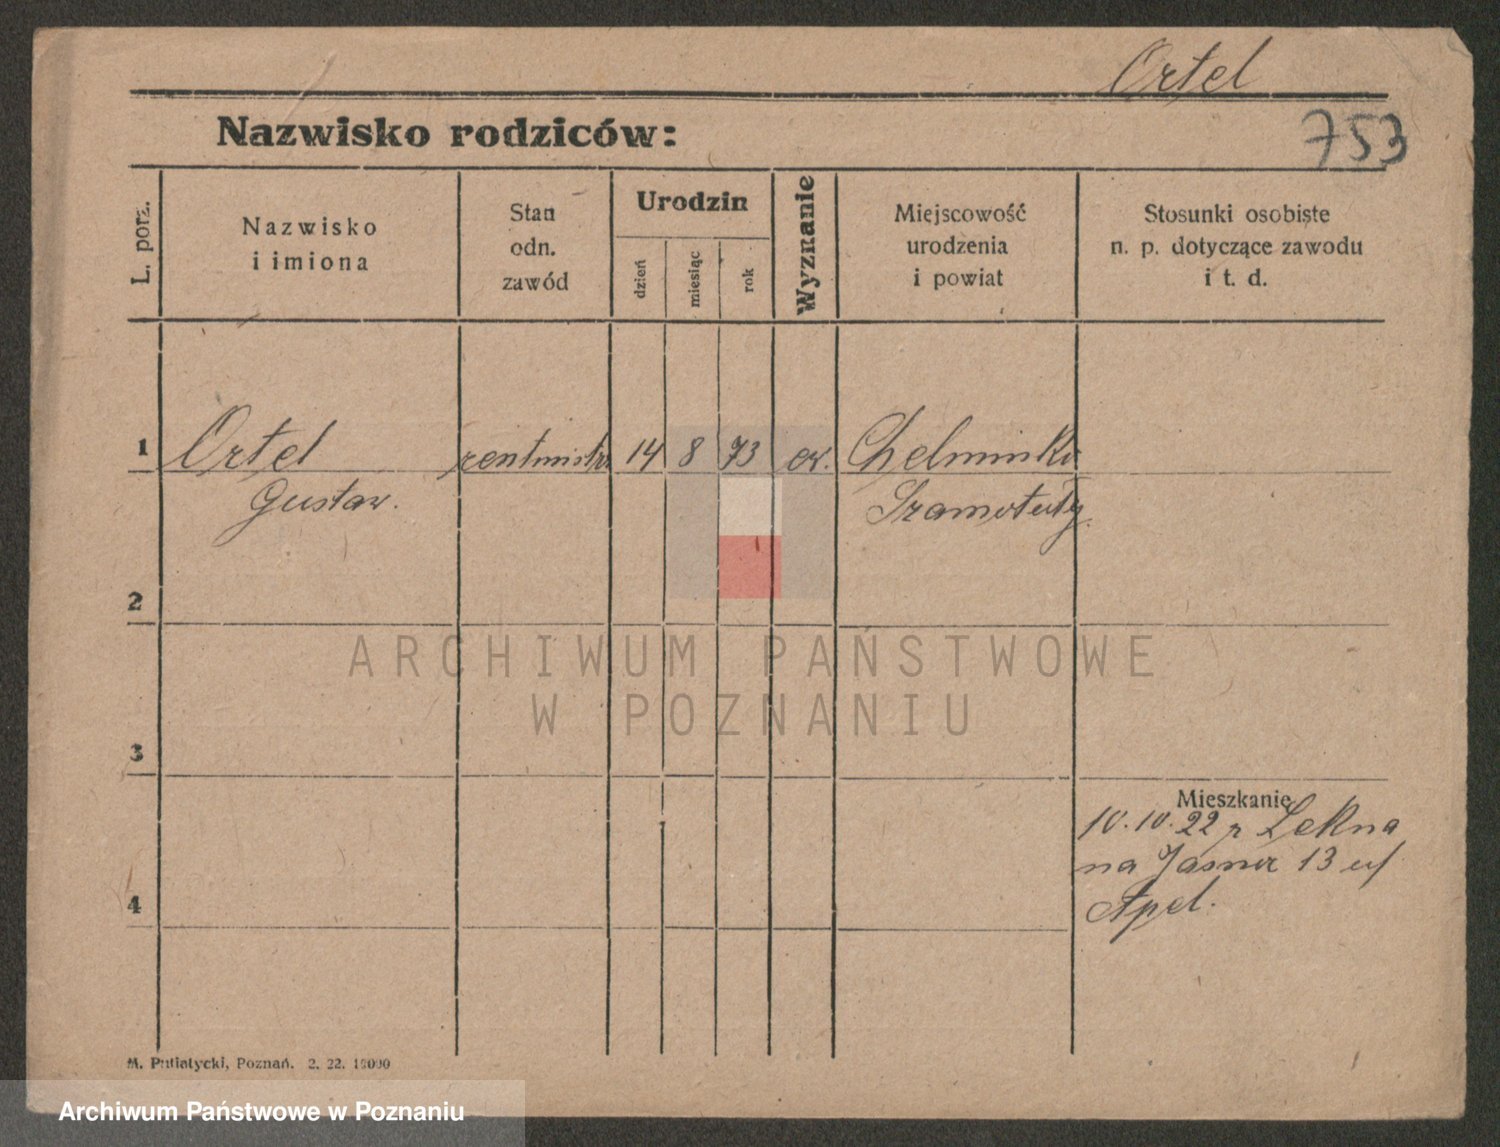 Ortel
Nazwisko rodziców:
753
L. porz.
Nazwisko
i imiona
Stan
odn.
zawód
Urodzin
dzień
miesiąc
rok
Wyznanie
Miejscowość
urodzenia
i powiat
Stosunki osobiste
n. p. dotyczące zawodu
i t. d.
1 Ortel rentmistrz 14 8 73 ew. Chelminko
Gustaw. Szamotuły
2
3
Mieszkanie
10.10.22 z Lekna
na Jasna 13 u/
Apel.
4
M. Putiatycki, Poznań. 2. 22. 15000
ARCHIWUM PAŃSTWOWE
W POZNANIU
Archiwum Państwowe w Poznaniu